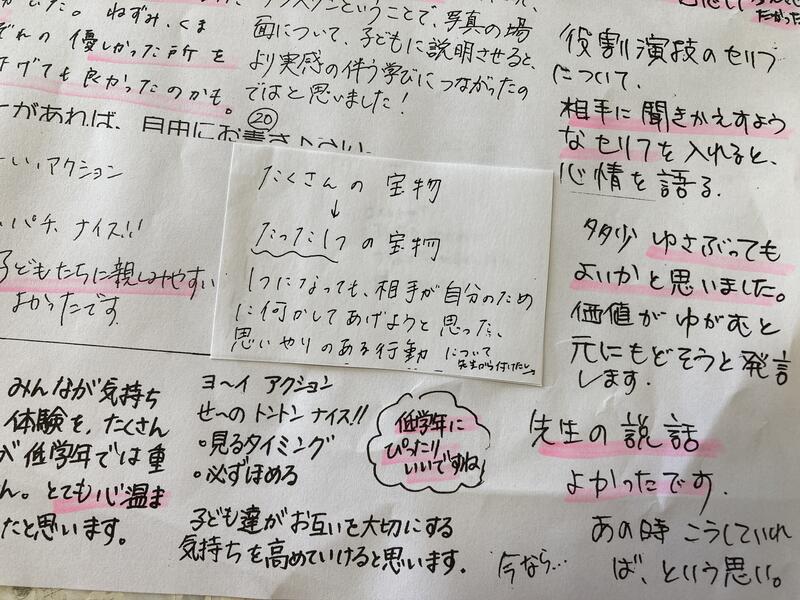 ねずみ、くま
ぞれの優しかった所を
げても良かったのかも。
ということで、写真の場
面について、子どもに説明させると、
より実感の伴う学びにつながったの
ではと思いました！
⑳
があれば、自由にお書きください。
いいアクション
パチ、ナイス!!
子どもたちに親しみやすい
よかったです
たくさんの宝物
↓
たった1つの宝物
1つになっても、相手が自分のため
に何かしてあげようと思った、
思いやりのある行動について
先生から付けたし
だかった
役割演技のセリフ
について、
相手に聞きかえすよう
なセリフを入れると、
心情を語る。
多少ゆさぶっても
よいかと思いました。
価値がゆがむと
元にもどそうと発言
します。
みんなが気持ち
体験を、たくさん
が低学年では重
ん。とても心温ま
たと思います。
ヨ〜イ アクション
せ〜の トントン ナイス!!
・見るタイミング
・必ずほめる
低学年に
ぴったり
いいですね
子ども達がお互いを大切にする
気持ちを高めていけると思います。
先生の説話
よかったです。
あの時 こうしていれ
ば、という思い。
今なら…